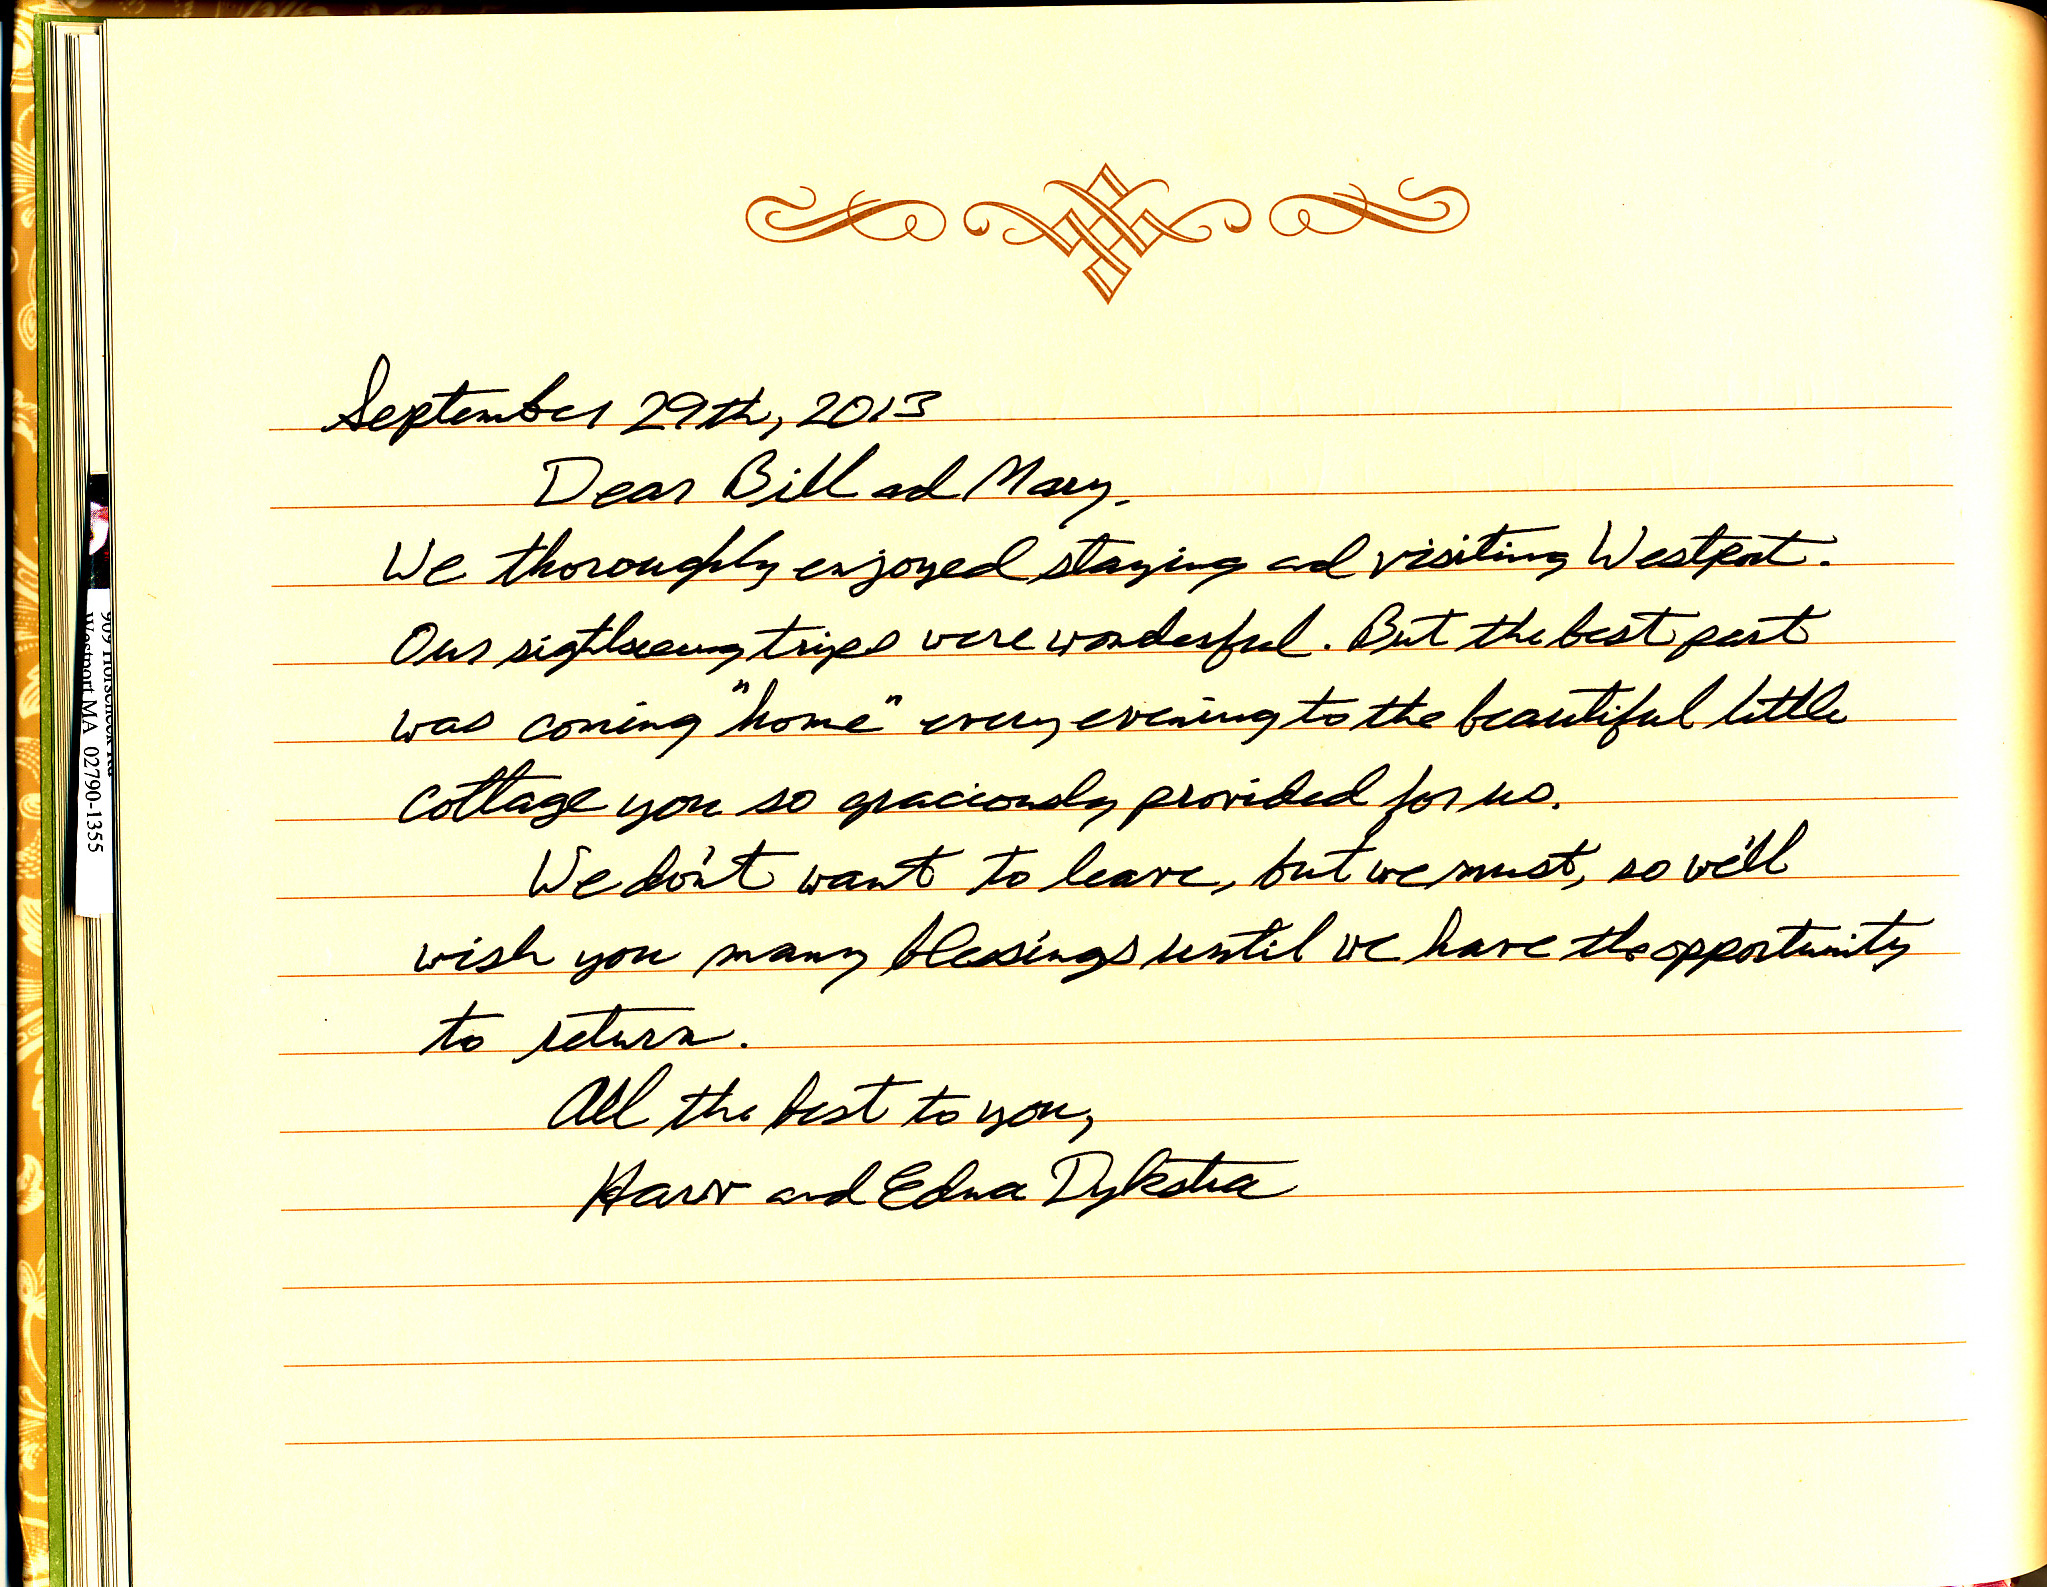 September 29th, 2013
Dear Bill and Mary,
We thoroughly enjoyed staying and visiting Westport.
Our sightseeing trips were wonderful. But the best part
was coming "home" every evening to the beautiful little
cottage you so graciously provided for us.
We don't want to leave, but we must, so we'll
wish you many blessings until we have the opportunity
to return.
All the best to you,
and Edna Dykstra
909 Horseneck Rd
Westport MA 02790-1355